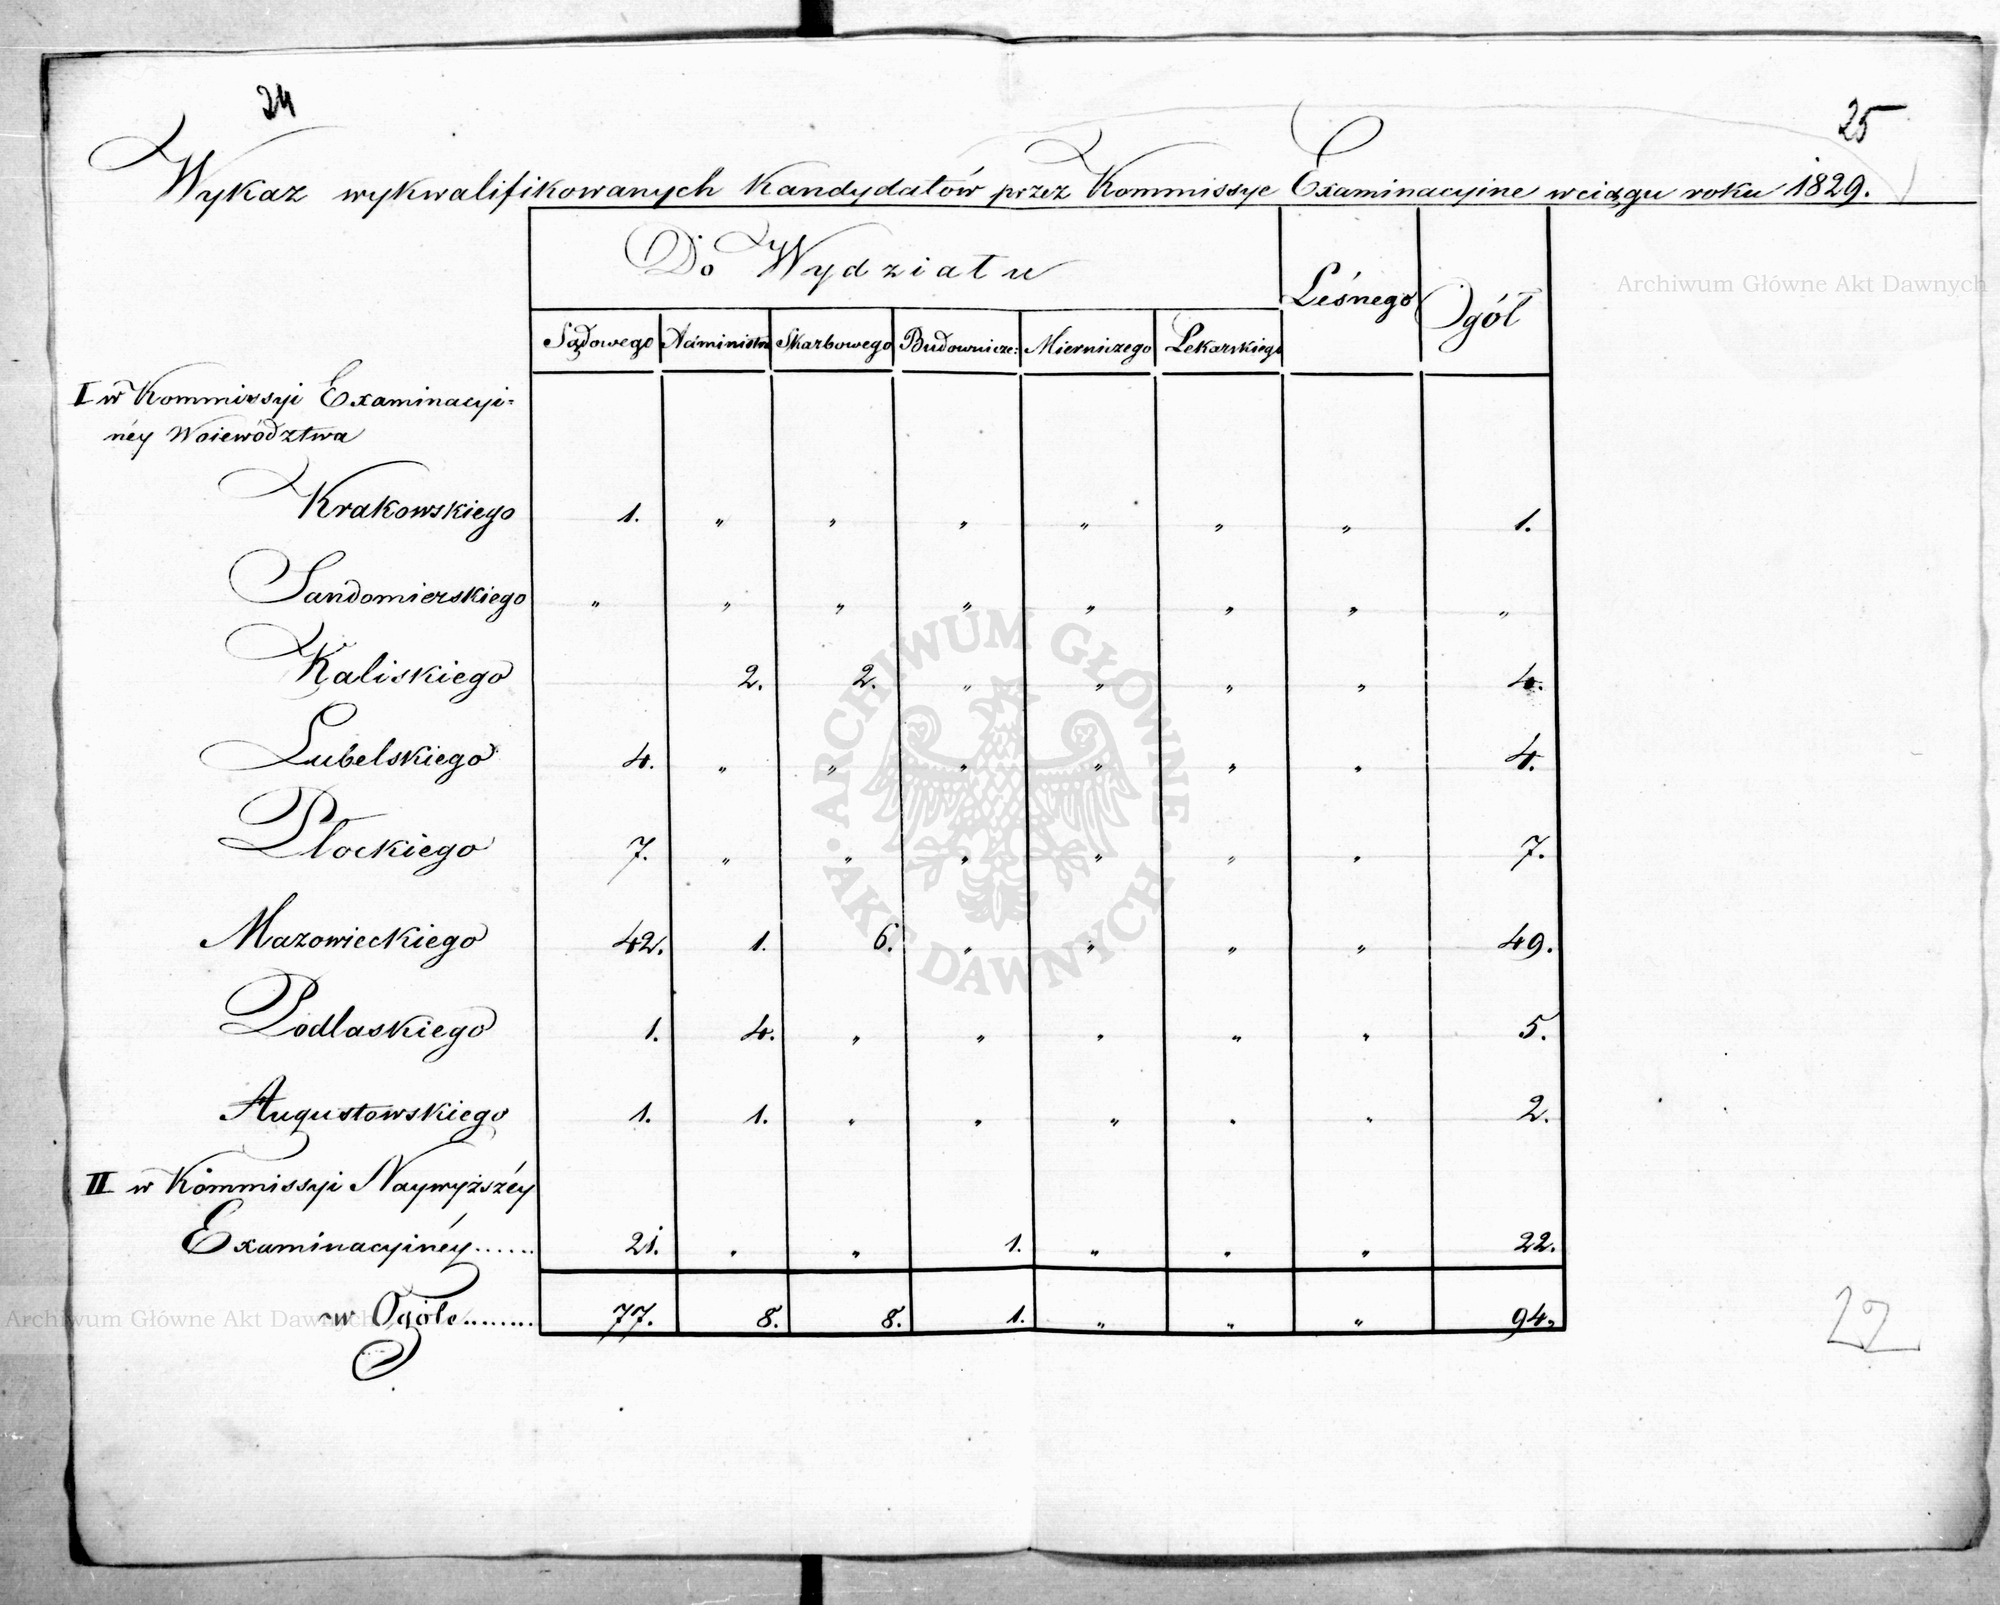 24
25
Wykaz wykwalifikowanych Kandydatów przez Kommissye Examinacyine w ciągu roku 1829.
Do Wydziału
Leśnego
Ogół
Sądowego Administra Skarbowego Budownicze: Mierniczego Lekarskiego
I w Kommissyi Examinacyi-
néy Woiewództwa
Krakowskiego 1. „ „ „ „ „ „ 1.
Sandomierskiego „ „ „ „ „ „ „ „
Kaliskiego 2. 2. „ „ „ „ 4.
Lubelskiego 4. „ „ „ „ „ „ 4.
Płockiego 7. „ „ „ „ „ „ 7.
Mazowieckiego 42. 1. 6. „ „ „ „ 49.
Podlaskiego 1. 4. „ „ „ „ „ 5.
Augustowskiego 1. 1. „ „ „ „ „ 2.
II w Kommissyi Naywyższéy
Examinacyinéy...... 21. „ „ 1. „ „ „ 22.
w Ogóle....... 77. 8. 8. 1. „ „ „ 94.
22
Archiwum Główne Akt Dawnych
ARCHIWUM GŁÓWNE
AKT DAWNYCH
Archiwum Główne Akt Dawnych